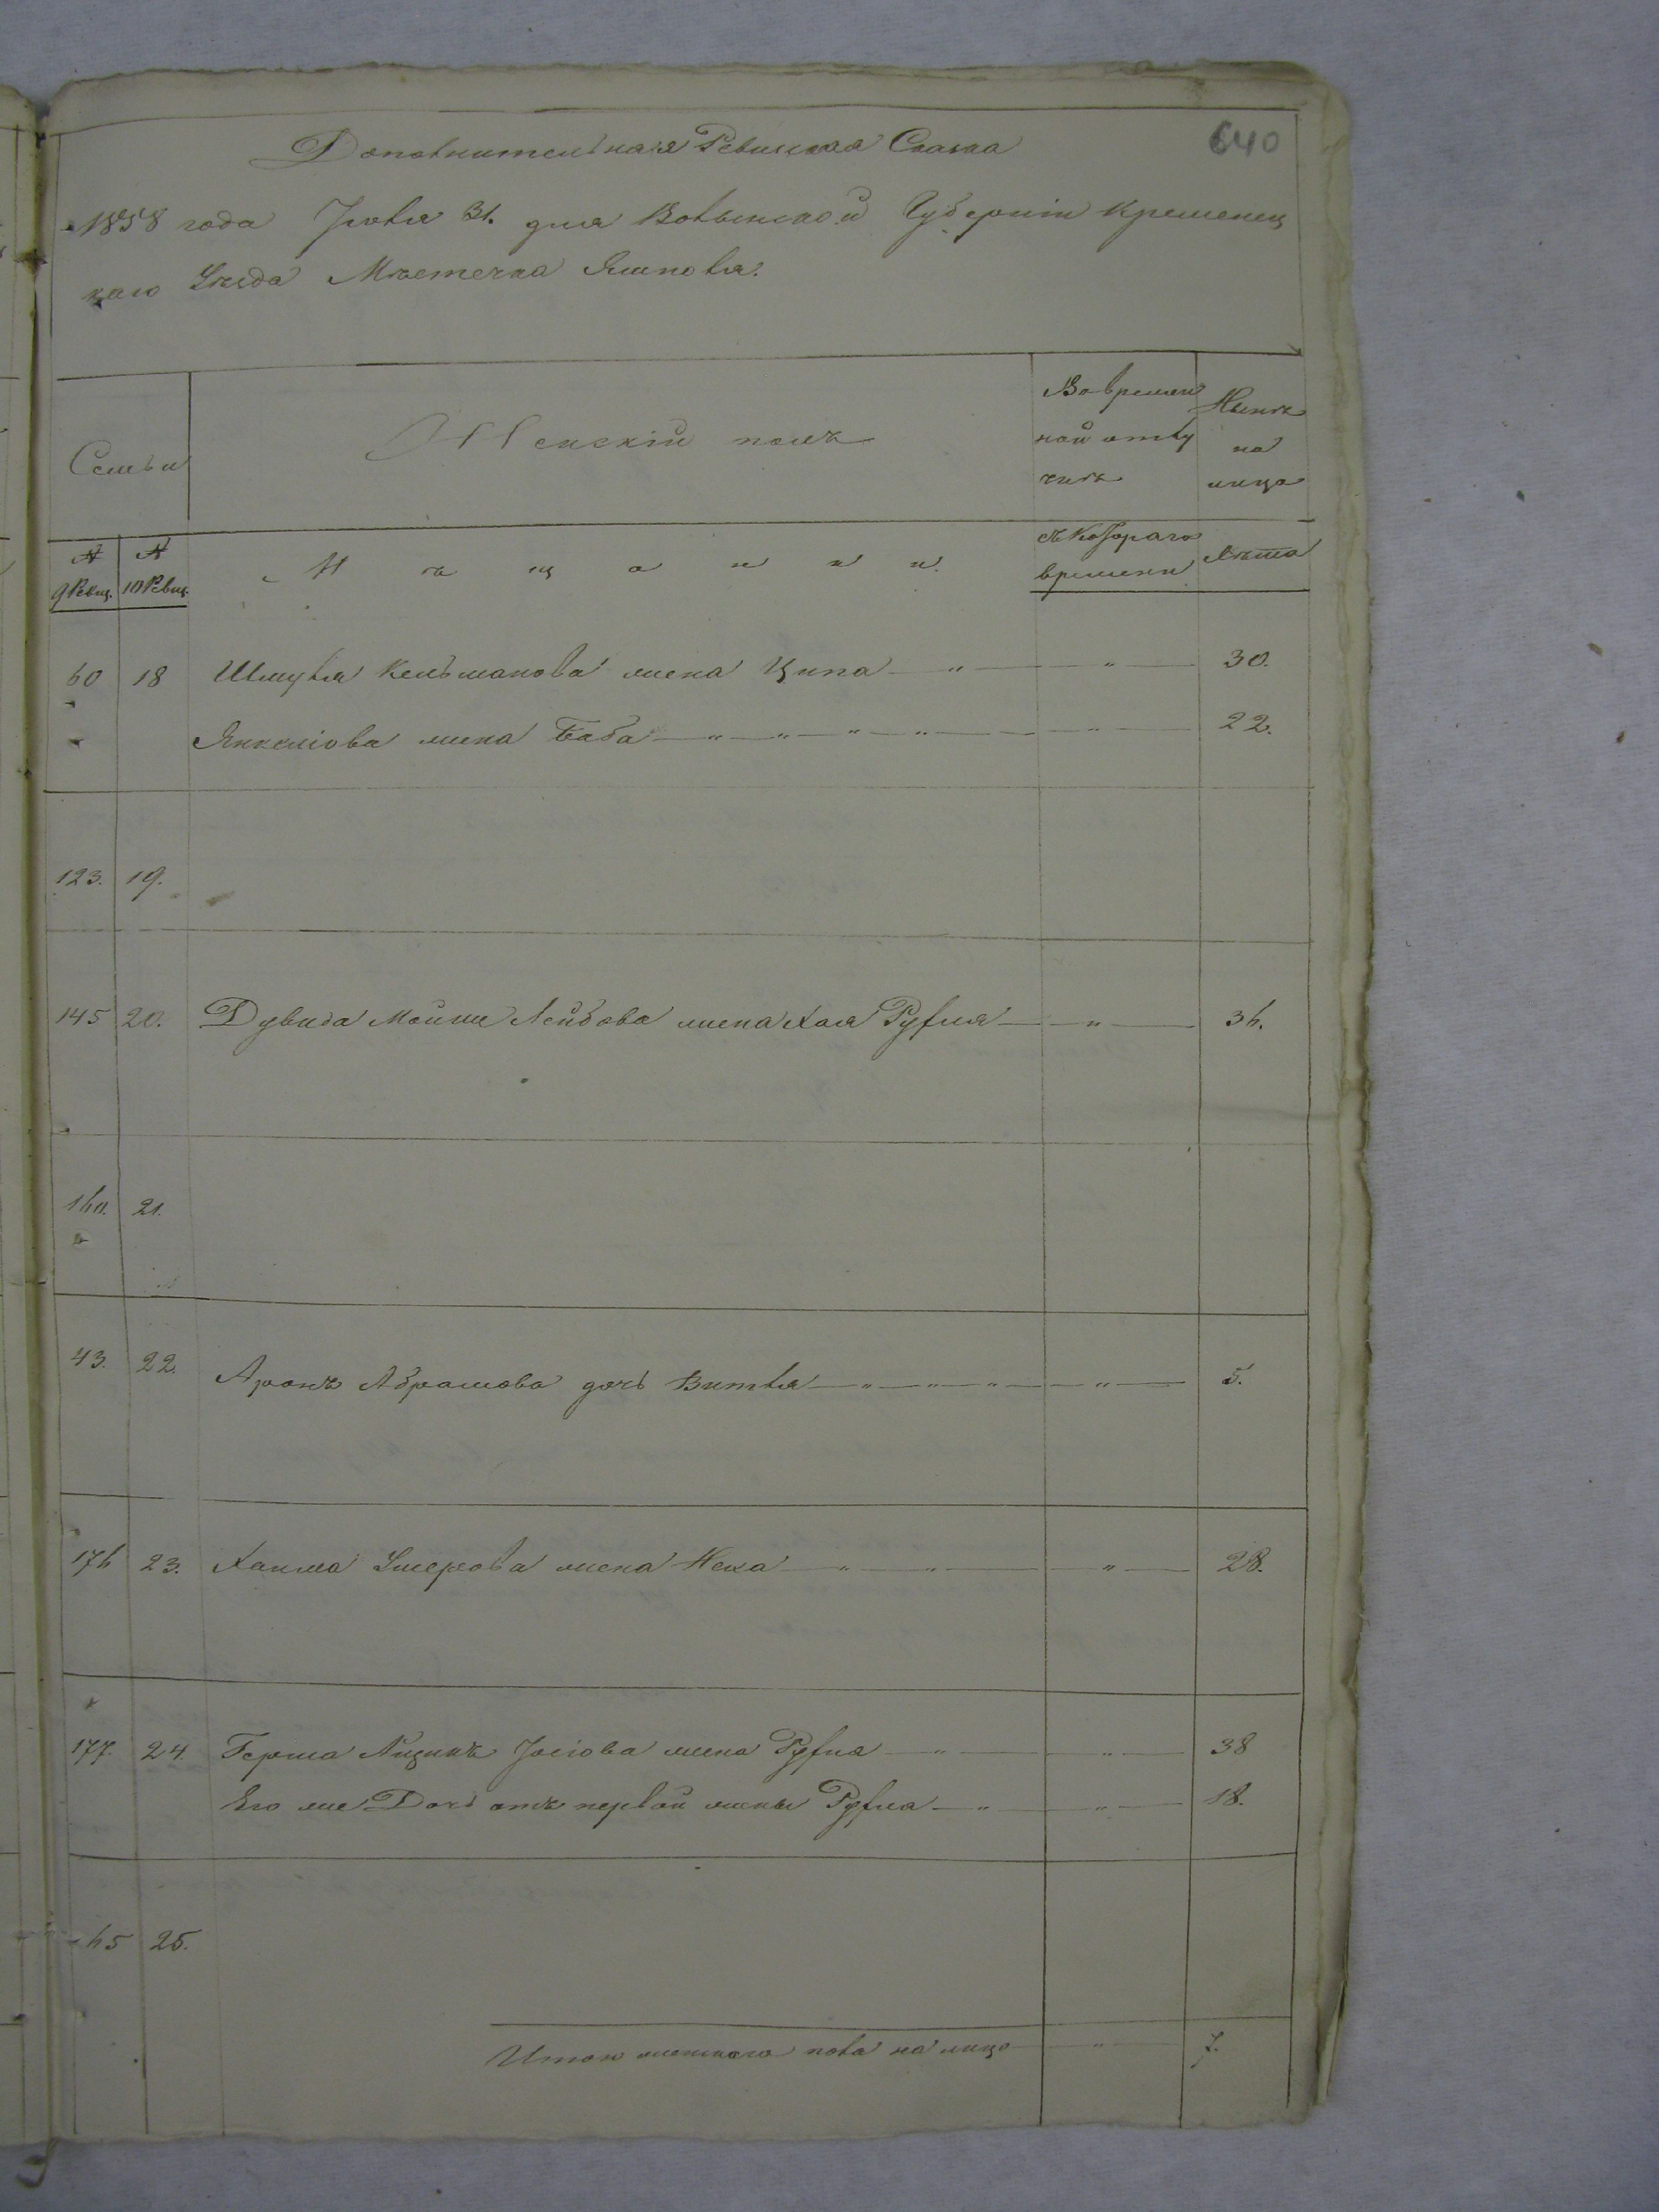 640
Дополнительная Ревизская Сказка
1858 года Іюля 31. дня Волынской Губерніи Кременец
каго Уѣзда Мѣстечка Ямполя.
Семьи
Женскій полъ
Во времен
ной отлу
чкѣ
Нынѣ
на
лицо
№ 9 Ревиз.
№ 10 Ревиз.
Мѣщанки.
съ Котораго
времени
Лѣта
60 18 Шмуля Кельманова жена Ципа — " — " — 30.
Янкеліова жена Баба — " — " — " — " — " — 22.
123. 19.
145 20. Дувида Мошки Лейбова жена Хая Руфля — " — 36.
160. 21.
43. 22. Аронъ Абрамова дочь Витля — " — " — " — " — 5.
176 23. Хаима Умерова жена Неха — " — " — " — 28.
177. 24. Герша Айзикъ Іосіова жена Руфля — " — " — 38
Его же Дочь отъ первой жены Руфля — " — " — 18.
65 25.
Итого женскаго пола на лицо " 7.